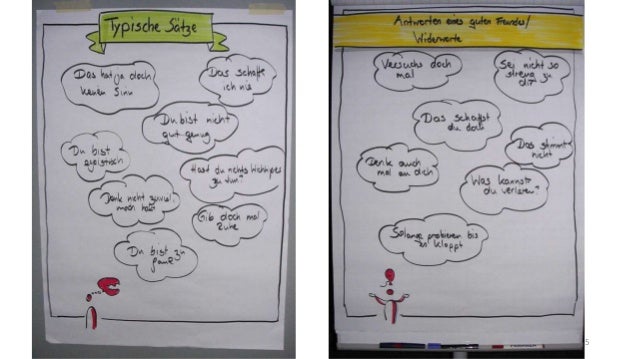 Typische Sätze
Das hat ja doch
keinen Sinn
Das schaffe
ich nie
Du bist nicht
gut genug
Du bist
egoistisch
Hast du nichts Wichtigeres
zu tun?
Denk nicht
mach
Gib doch mal
Ruhe
Du bist zu
Antworten eines guten Freundes/
Widerworte
Versuchs doch
mal
Sei nicht so
streng zu
dir
Das schaffst
du doch
Das stimmt
nicht
Denk auch
mal an dich
Was kannst
du verlieren?
Solange probieren bis
es klappt
5